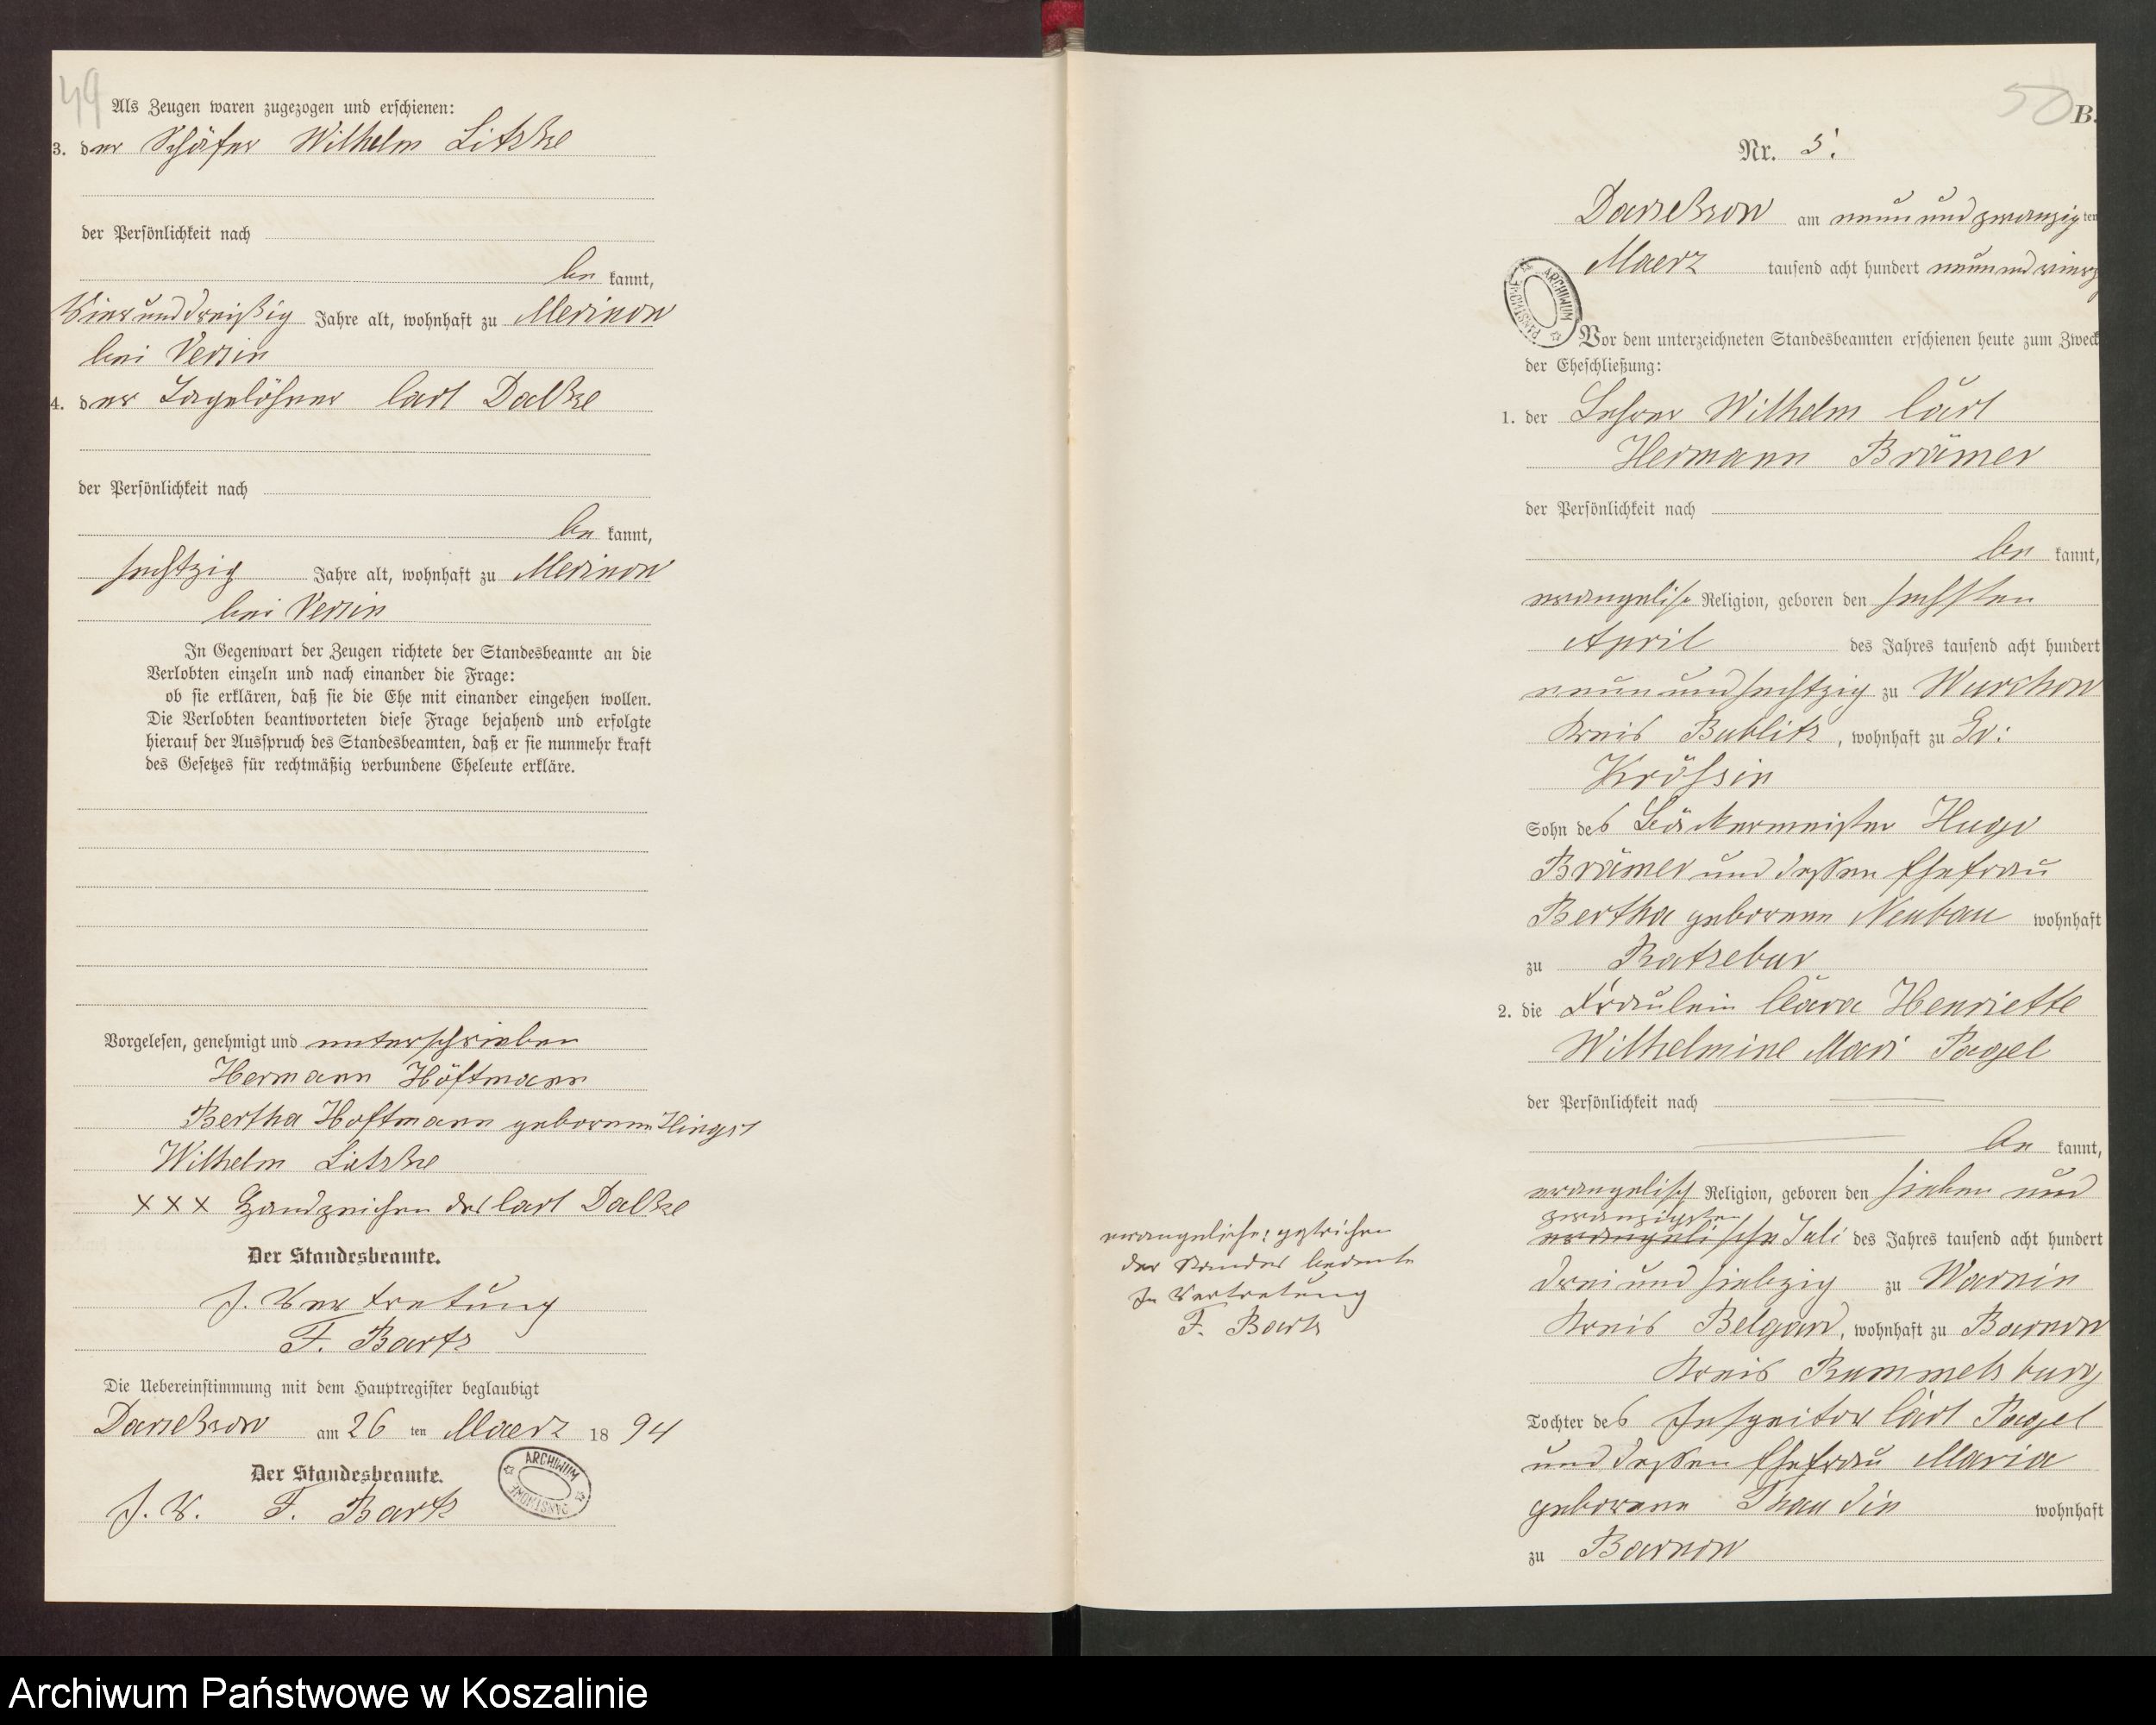 49
Als Zeugen waren zugezogen und erschienen:
3. der Schäfer Wilhelm Litzke
der Persönlichkeit nach
be kannt,
Vier und dreißig Jahre alt, wohnhaft zu Merinow
bei Versin
4. der Tagelöhner Carl Dalke
der Persönlichkeit nach
be kannt,
sechszig Jahre alt, wohnhaft zu Merinow
bei Versin
In Gegenwart der Zeugen richtete der Standesbeamte an die
Verlobten einzeln und nach einander die Frage:
ob sie erklären, daß sie die Ehe mit einander eingehen wollen.
Die Verlobten beantworteten diese Frage bejahend und erfolgte
hierauf der Ausspruch des Standesbeamten, daß er sie nunmehr kraft
des Gesetzes für rechtmäßig verbundene Eheleute erkläre.
Vorgelesen, genehmigt und unterschrieben
Hermann Höftmann
Bertha Hoftmann geborene Hingst
Wilhelm Litzke
××× Handzeichen des Carl Dalke
Der Standesbeamte.
J. Vertretung
F. Bartz
Die Uebereinstimmung mit dem Hauptregister beglaubigt
Darsekow am 26 ten Maerz 18 94
Der Standesbeamte.
J. V. F. Bartz
ARCHIWUM PAŃSTWOWE
50
B.
Nr. 5.
Darsekow am neun und zwanzig ten
Maerz tausend acht hundert neun und
ARCHIWUM PAŃSTWOWE
Vor dem unterzeichneten Standesbeamten erschienen heute zum Zweck
der Eheschließung:
1. der Lehrer Wilhelm Carl
Hermann Brämer
der Persönlichkeit nach
be kannt,
evangelisch Religion, geboren den sechsten
April des Jahres tausend acht hundert
neun und sechszig zu Wurchow
Kreis Bublitz, wohnhaft zu Gr:
Krössin
Sohn des Bäckermeister Hugo
Brämer und dessen Ehefrau
Bertha geborene Neubau wohnhaft
zu Ratzebur
2. die Fräulein Clara Henriette
Wilhelmine Mari Pagel
der Persönlichkeit nach
be kannt,
evangelisch Religion, geboren den sieben und
zwanzigsten
evangelische Juli des Jahres tausend acht hundert
drei und siebzig zu Warnin
Kreis Belgard, wohnhaft zu Barnow
Kreis Rummelsburg
Tochter des Inspeitor Carl Pagel
und dessen Ehefrau Maria
geborene wohnhaft
zu Barnow
evangelische: gestrichen
der
In Vertretung
F. Bartz
Archiwum Państwowe w Koszalinie